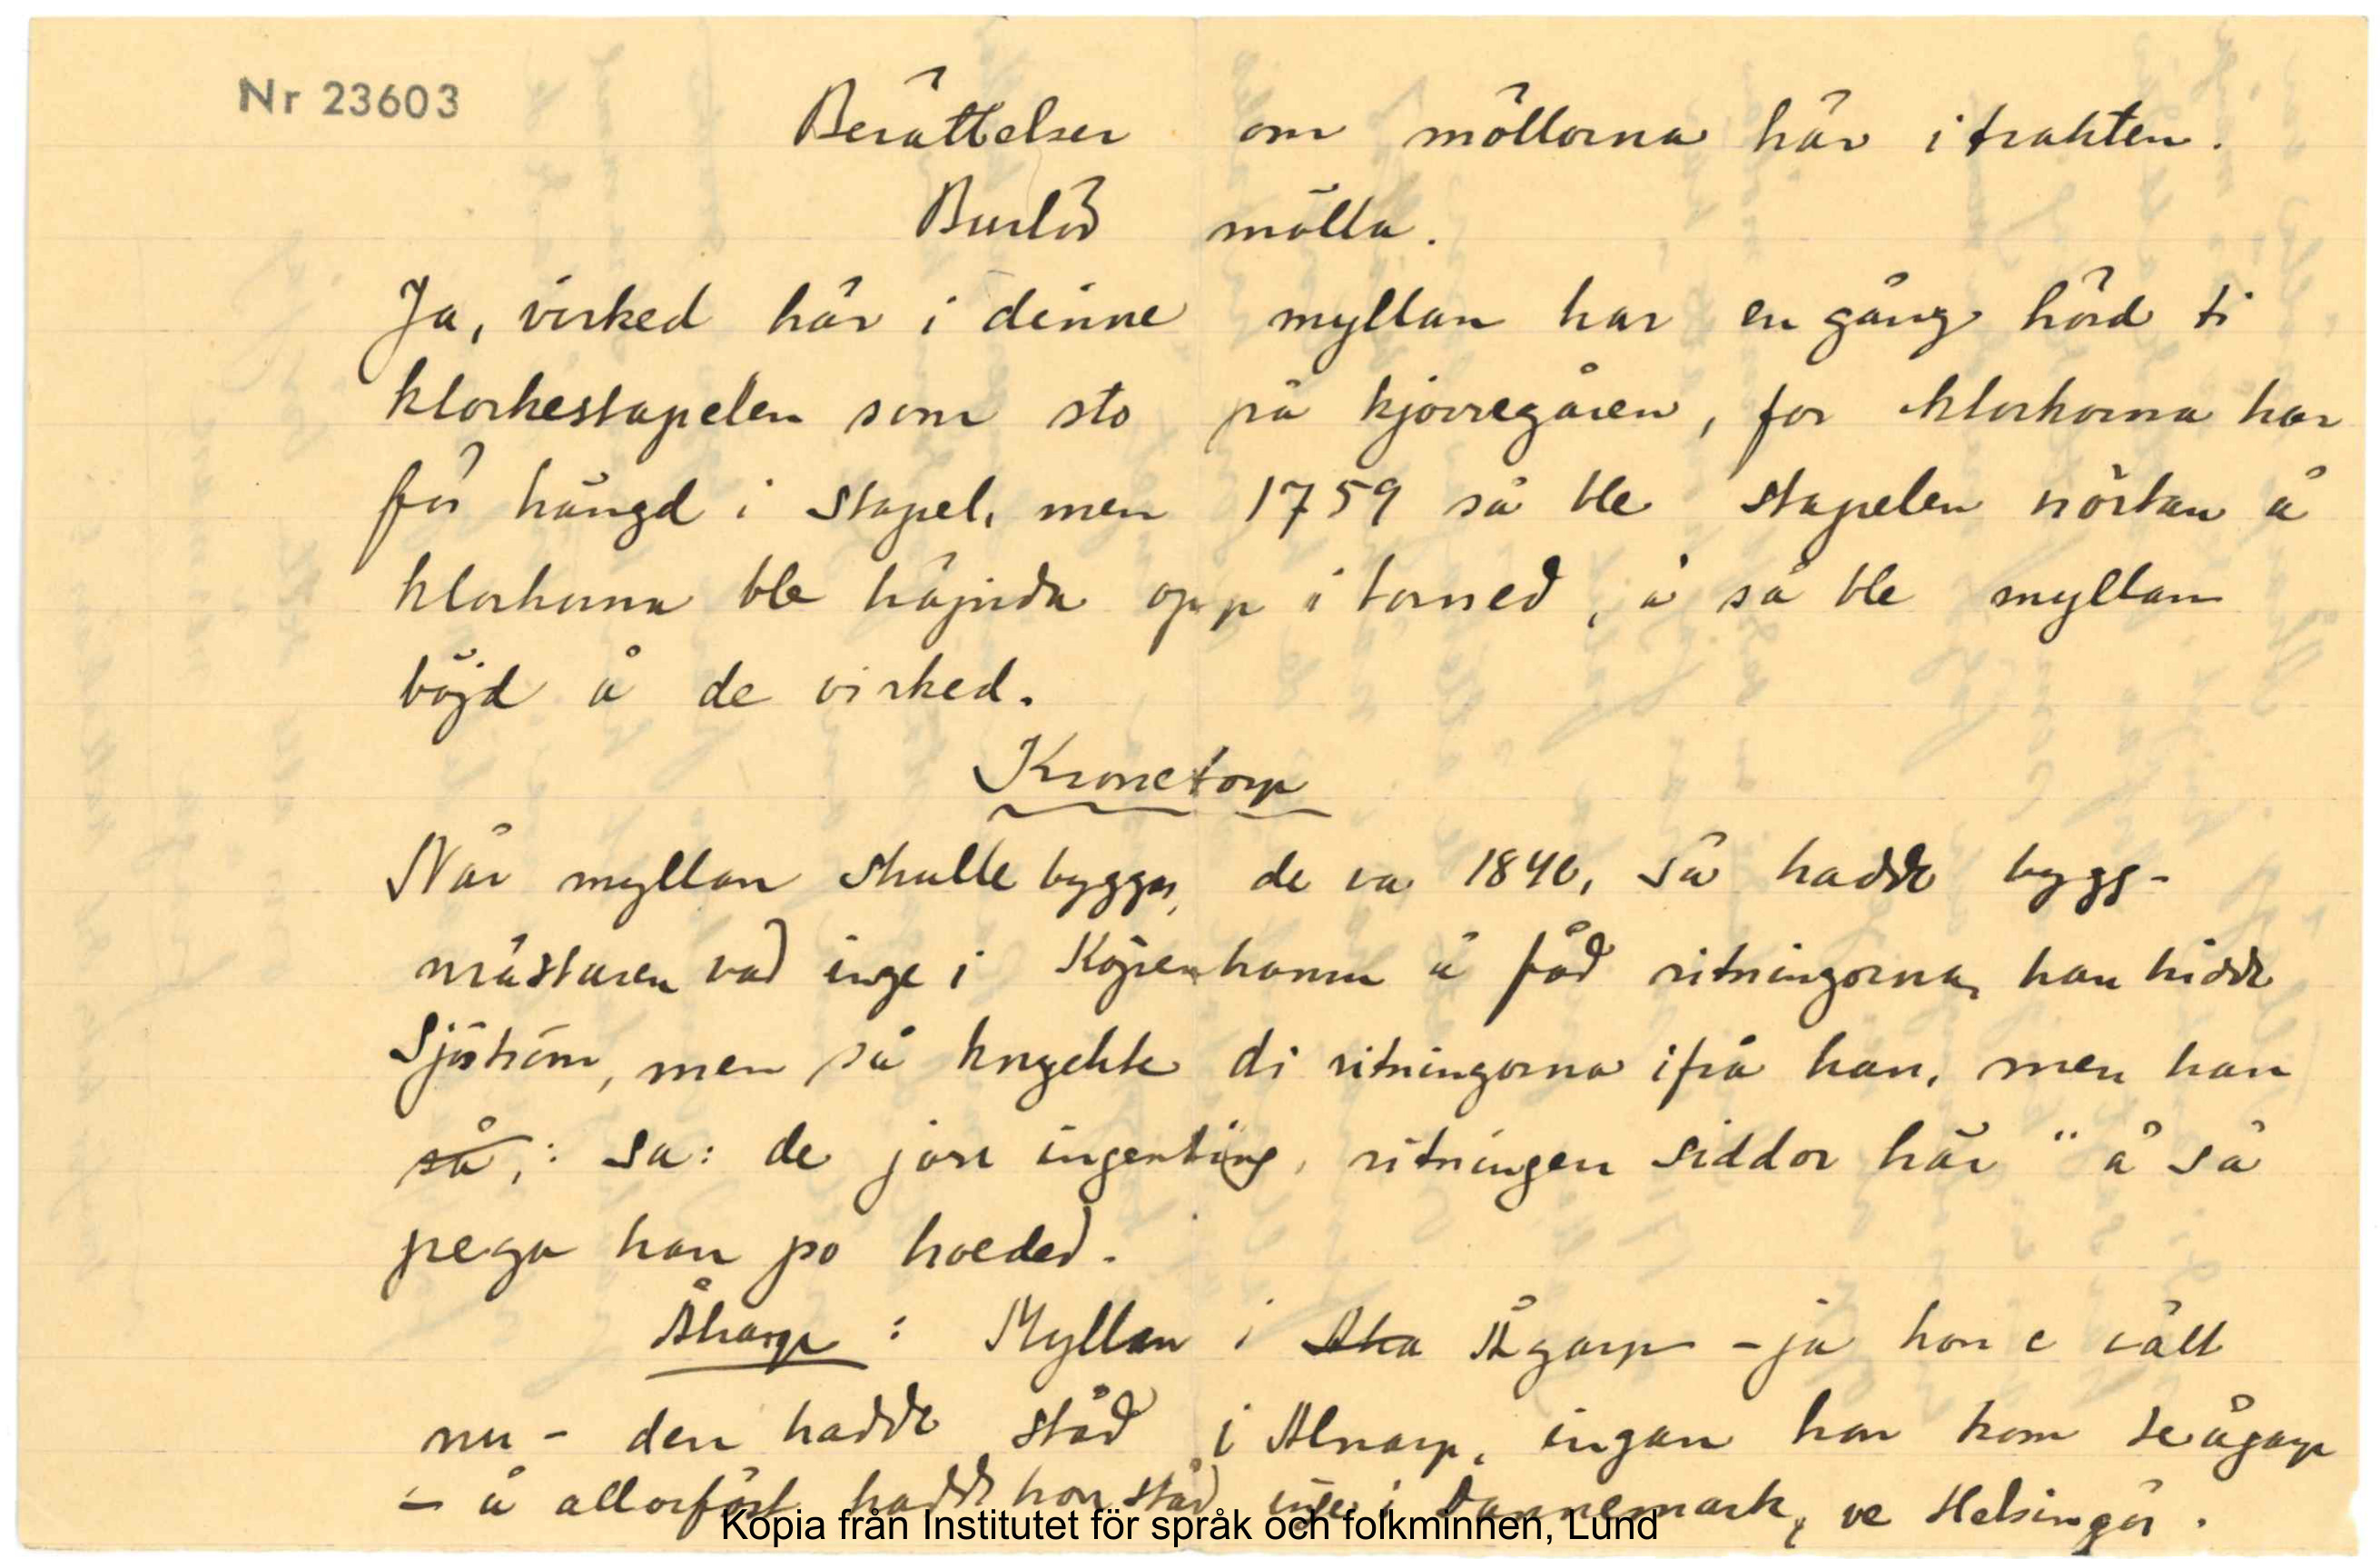 Nr 23603
Berättelser om möllorna här i trakten.
Burlöv mölla.
Ja, virked här i dinne myllan har en gång hörd ti
klockestapelen som sto på kjørregåren, for klockorna har
för hängd i stapel, men 1759 så ble stapelen
klockorna ble opp i torned, å så ble myllan
böjd å de virked.
Kronetorp
När myllan skulle byggas, de va 1840, så hadde bygg-
mästaren vad inge i Köpenhamn å fåd ritningorna, han hidde
Sjöström, men så knyckte di ritningorna ifrå han, men han
så,: sa: de jørr ingenting, ritningen siddor här " å så
pega han po hoeded.
Åkarp : Myllan i Aka Ågarp - ja hon e vält
nu - den hadde ståd i Alnarp, ingan hon kom te ågarp
- å allorförst hadde hon ståd inge i Dannemark, ve Helsingör.
Kopia från Institutet för språk och folkminnen, Lund